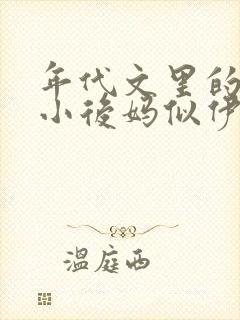 年代文里的
小後妈似伊
温庭西